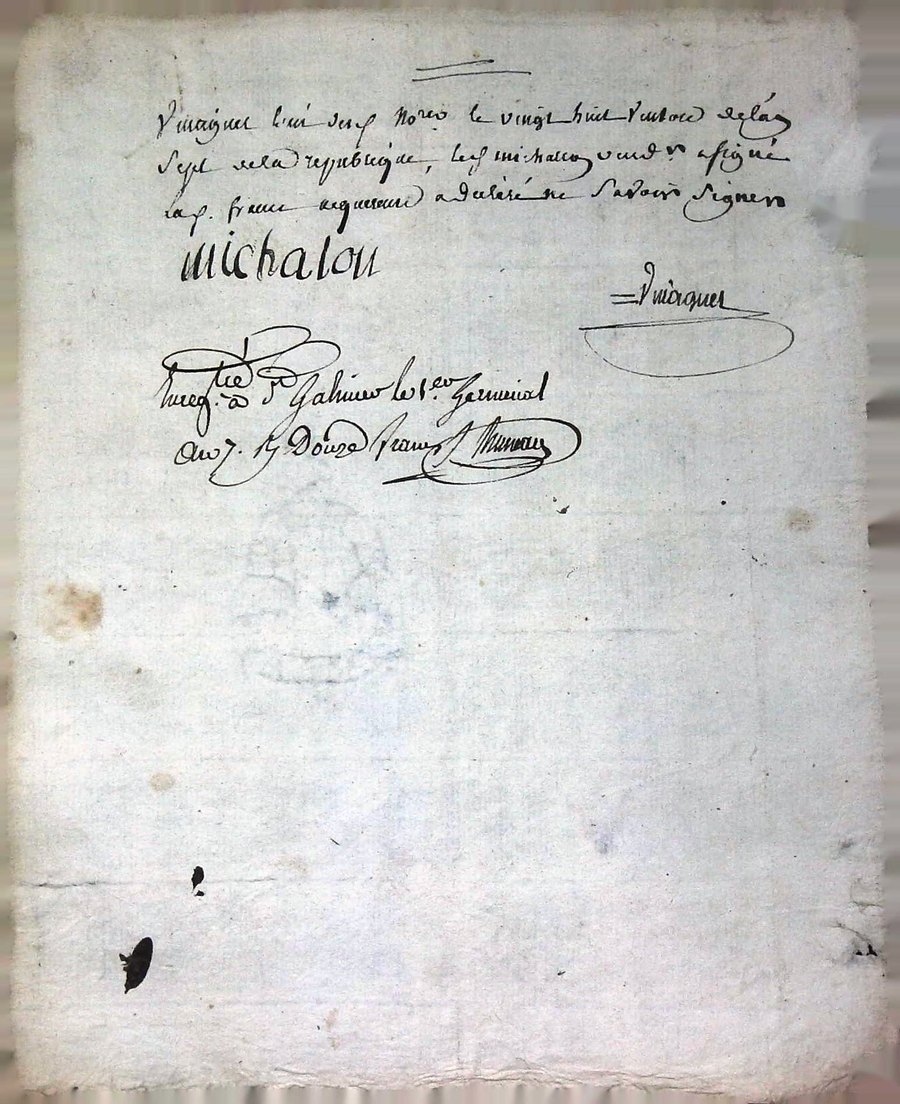 Vinaignet l'un des d. Nores le vingt huit Ventose de lan
Sept de la republique, le d. michalon vendr. a signé
La d. france acquereure a declaré ne Savoir Signer
michalon
Vinaignet
Enregtré à St Galmier le 1.er Germinal
an 7. Rs Douze francs